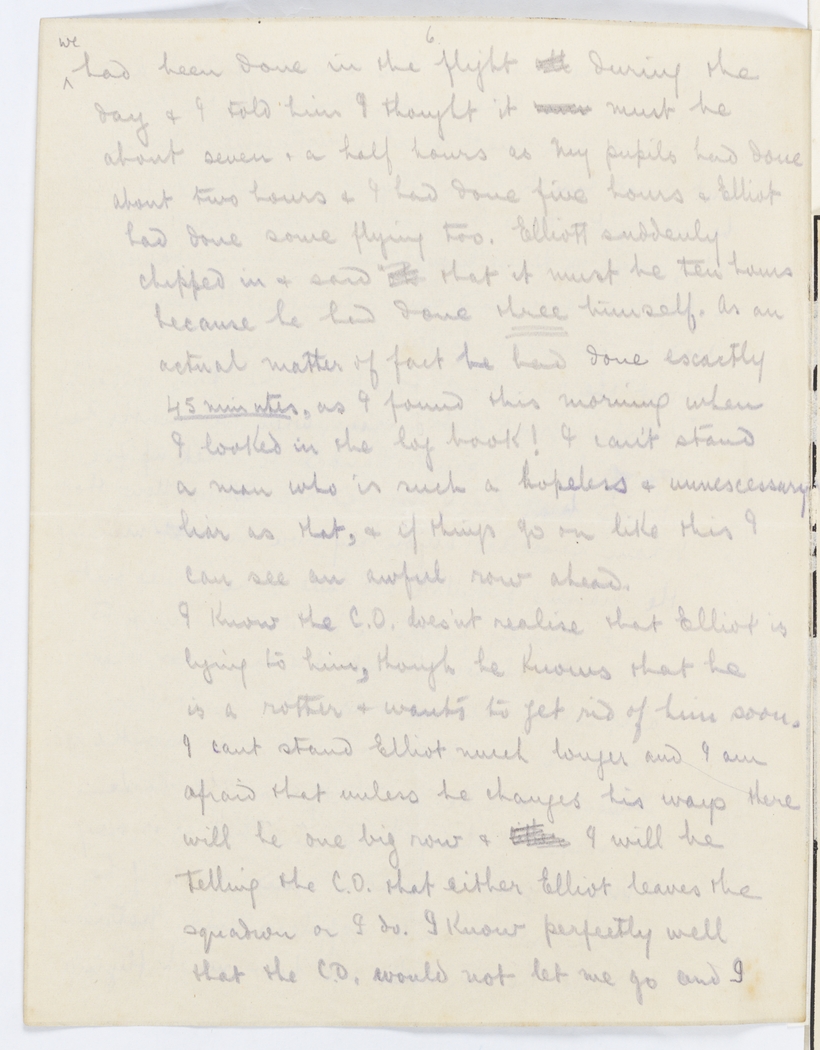 6
we
^ had been done in the flight during the
day & I told him I thought it must be
about seven & a half hours as my pupils had done
about two hours & I had done five hours & Elliot
had done some flying too. Elliott suddenly
chipped in & said that it must be ten hours
because he had done three himself. As an
actual matter of fact he had done escactly
45 minutes, as I found this morning when
I looked in the log book! I can't stand
a man who is such a hopeless & unnescessary
liar as that, & if things go on like this I
can see an awful row ahead.
I know the C.O. does'nt realise that Elliot is
lying to him, though he knows that he
is a rotter & wants to get rid of him soon.
I cant stand Elliot much longer and I am
afraid that unless he changes his ways there
will be one big row & I will be
telling the C.O. that either Elliot leaves the
squadron or I do. I know perfectly well
that the C.O. would not let me go and I